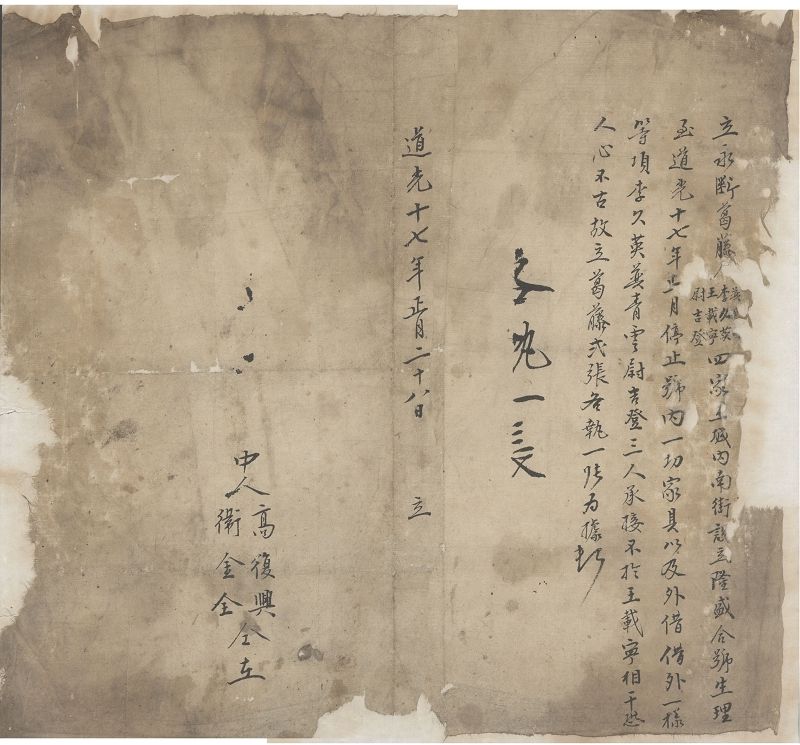 立永断葛藤人
李久英
王載寧
尉吉登
四家土城内南街設立隆盛合號生理
至道光十七年正月停止號内一切家具以及外借借外一樣
等項李久英龔青雲尉吉登三人承接不於王載寧相干恐
人心不古故立葛藤弍張各執一張為據
各執一張
道光十七年正月二十八日 立
中人 高復興
衛金全 仝在